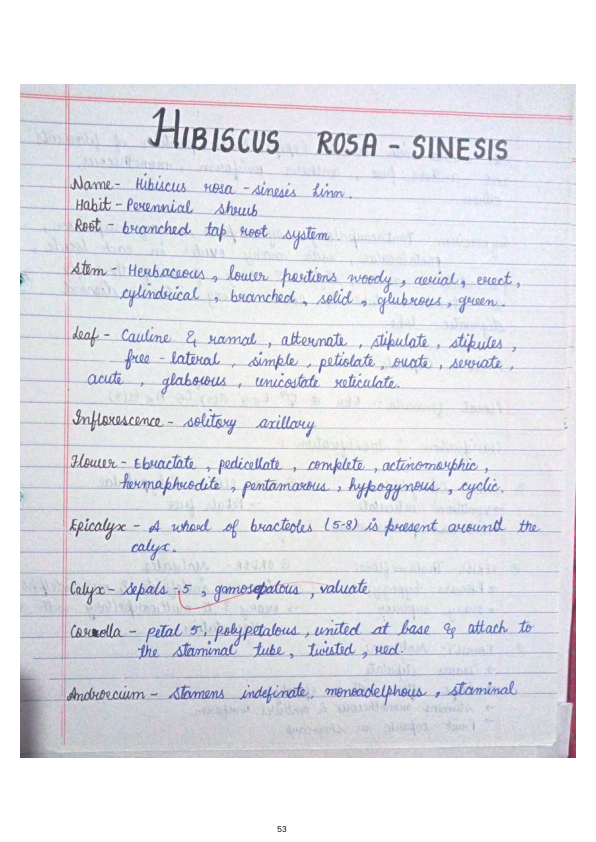 HIBISCUS ROSA - SINESIS
Name - Hibiscus rosa - sinesis Linn.
Habit - Perennial shrub
Root - branched tap root system
Stem - Herbaceous, lower portions woody, aerial, erect,
cylindrical, branched, solid, glubrous, green.
Leaf - Cauline & ramal, alternate, stipulate, stipules,
free - lateral, simple, petiolate, ovate, serrate,
acute, glaborous, unicostate reticulate.
Inflorescence - solitory axillary
Flower - Ebractate, pedicellate, complete, actinomorphic,
hermaphrodite, pentamarous, hypogynous, cyclic.
Epicalyx - A whorl of bracteoles (5-8) is present around the
calyx.
Calyx - Sepals - 5, gamosepalous, valuate
Corolla - petal 5, polypetalous, united at base & attach to
the staminal tube, twisted, red.
Androecium - Stamens indefinate, monoadelphous, staminal
53